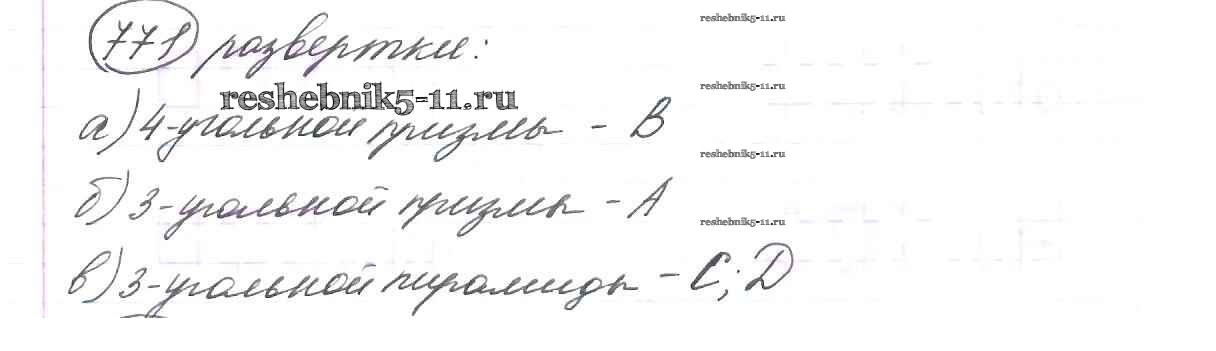 771 развертки:
reshebnik5-11.ru
а) 4-угольной призмы - В
б) 3-угольной призмы - А
в) 3-угольной пирамиды - С; D
reshebnik5-11.ru
reshebnik5-11.ru
reshebnik5-11.ru
reshebnik5-11.ru